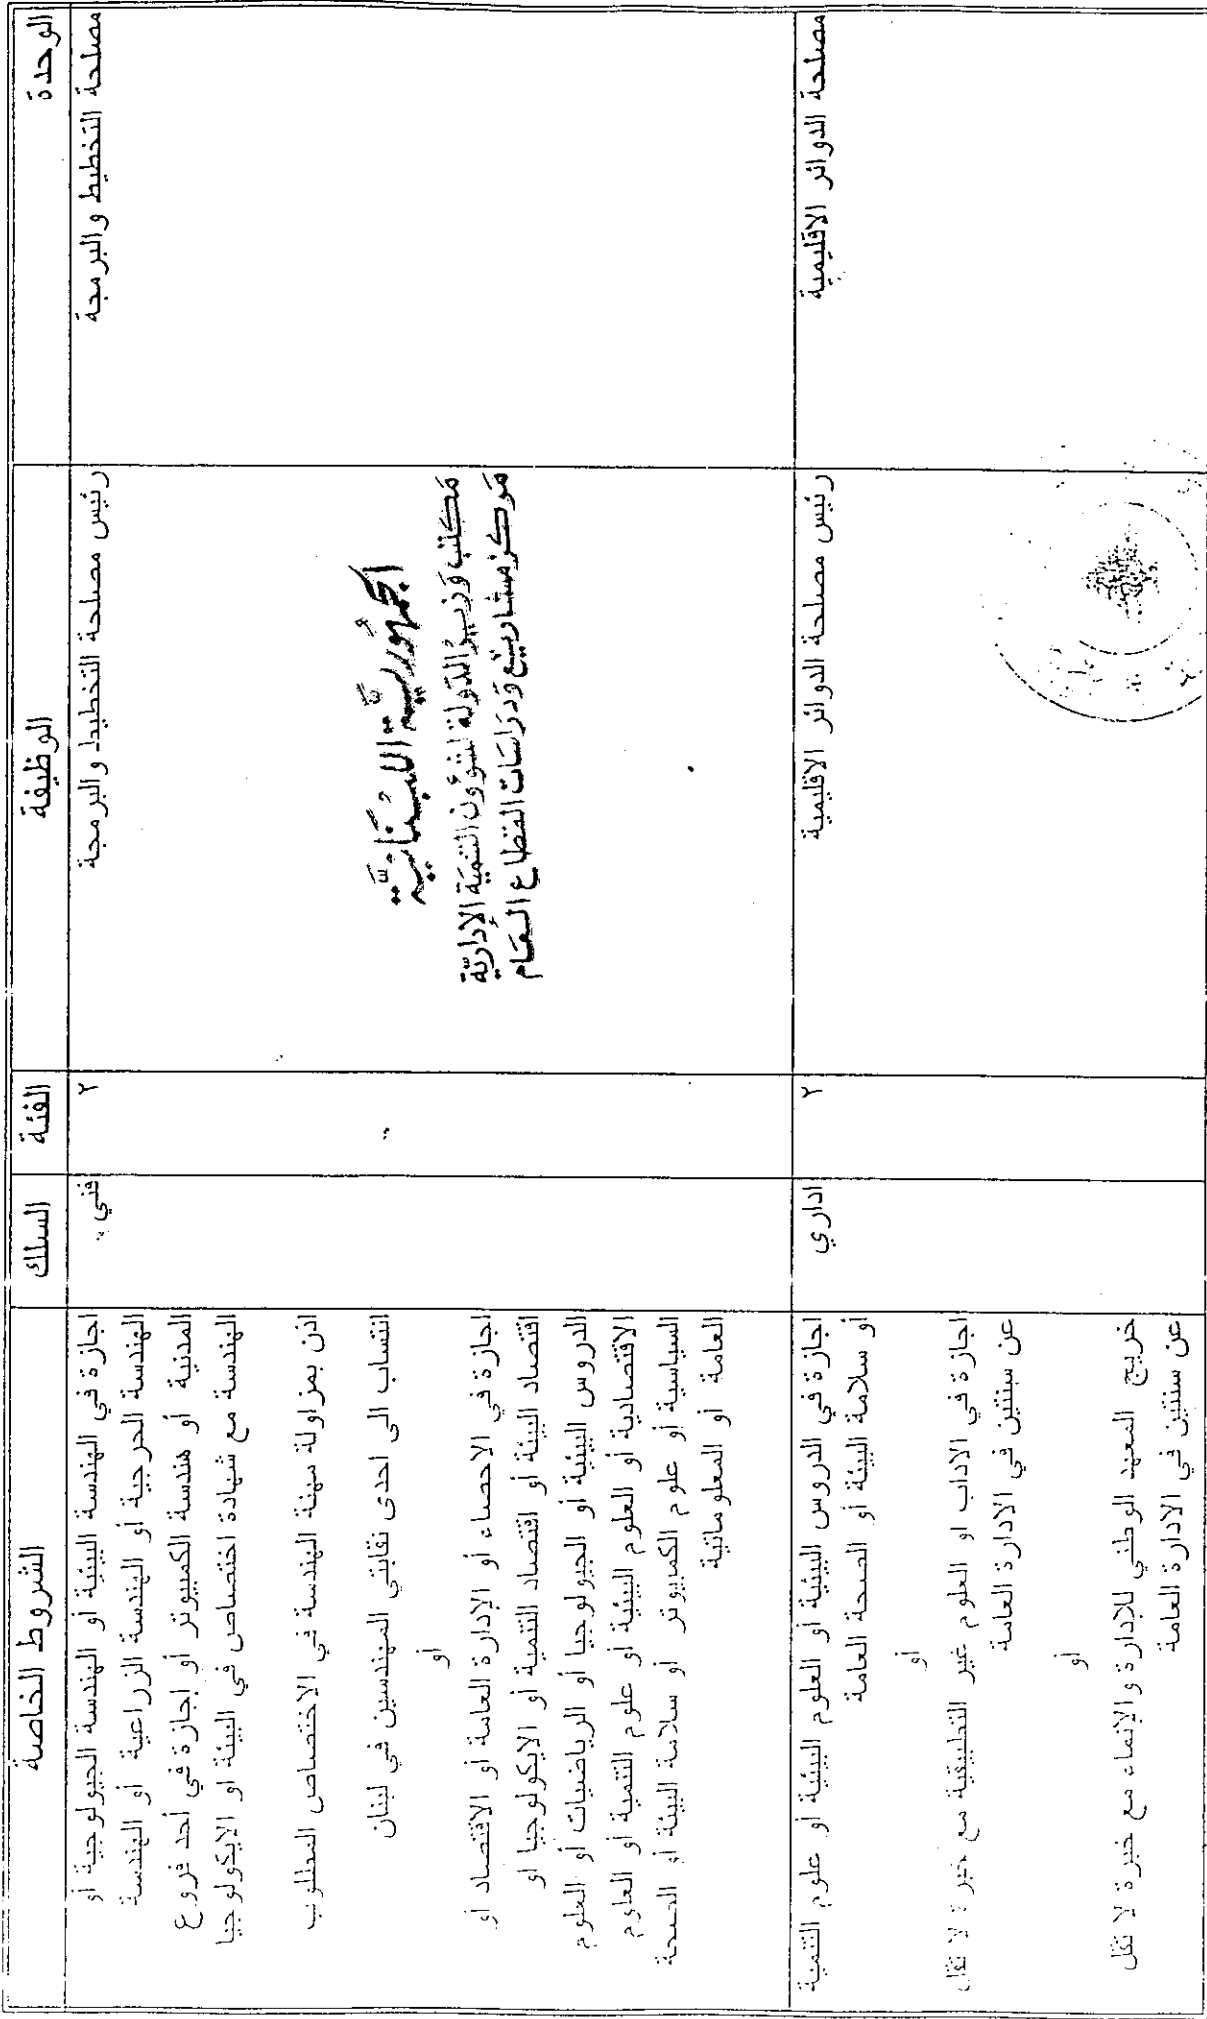 الوحدة
الوظيفة
الفئة
السلك
الشروط الخاصة
مصلحة التخطيط والبرمجة
رئيس مصلحة التخطيط والبرمجة
٢
فني
اجازة في الهندسة البيئية أو الهندسة الجيولوجية أو
الهندسة الحرجية أو الهندسة الزراعية أو الهندسة
المدنية أو هندسة الكمبيوتر أو إجازة في أحد فروع
الهندسة مع شهادة اختصاص في البيئة او الايكولوجيا
اذن بمزاولة مهنة الهندسة في الاختصاص المطلوب
انتساب الى احدى نقابتي المهندسين في لبنان
أو
اجازة في الاحصاء أو الإدارة العامة أو الاقتصاد أو
اقتصاد البيئة أو اقتصاد التنمية أو الايكولوجيا او
الدروس البيئية أو الجيولوجيا أو الرياضيات أو العلوم
الاقتصادية أو العلوم البيئية أو علوم التنمية أو العلوم
السياسية أو علوم الكمبيوتر أو سلامة البيئة أو الصحة
العامة أو المعلوماتية
الجمهورية اللبنانية
مكتب وزير الدولة لشؤون التنمية الإدارية
مركز مشاريع ودراسات القطاع العام
مصلحة الدوائر الاقليمية
رئيس مصلحة الدوائر الاقليمية
٢
اداري
اجازة في الدروس البيئية أو العلوم البيئية أو علوم التنمية
أو سلامة البيئة أو الصحة العامة
أو
اجازة في الاداب او العلوم غير التطبيقية مع خبرة لا تقل
عن سنتين في الادارة العامة
أو
خريج المعهد الوطني للإدارة والإنماء مع خبرة لا تقل
عن سنتين في الادارة العامة